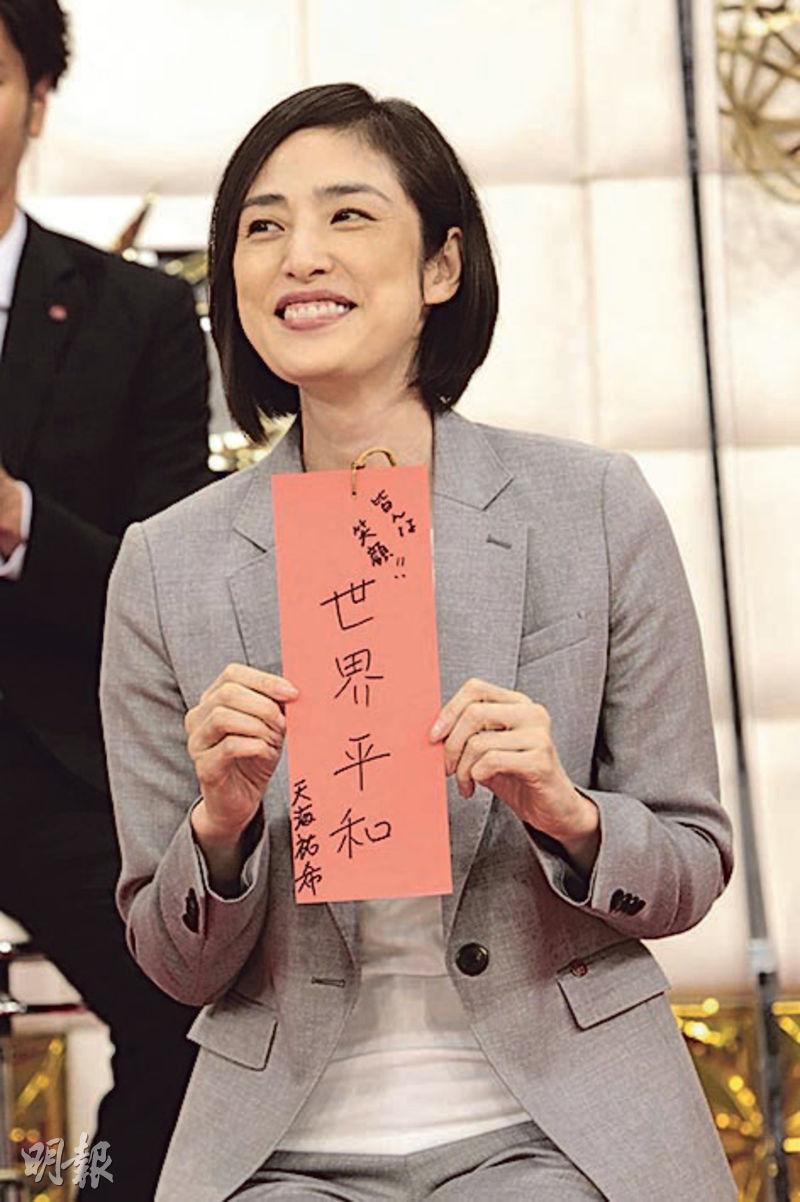 皆んは
笑顔!!
世界平和
天海祐希
明報